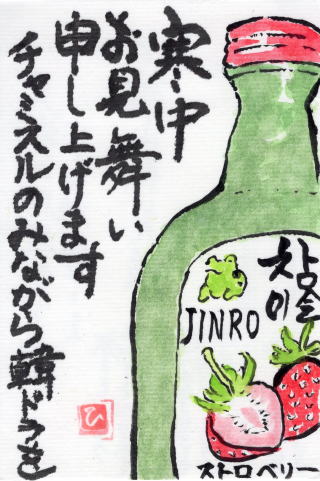 寒中
お見舞い
申し上げます
チャミスルのみながら韓ドラを
참이슬
JINRO
ストロベリー
ひ